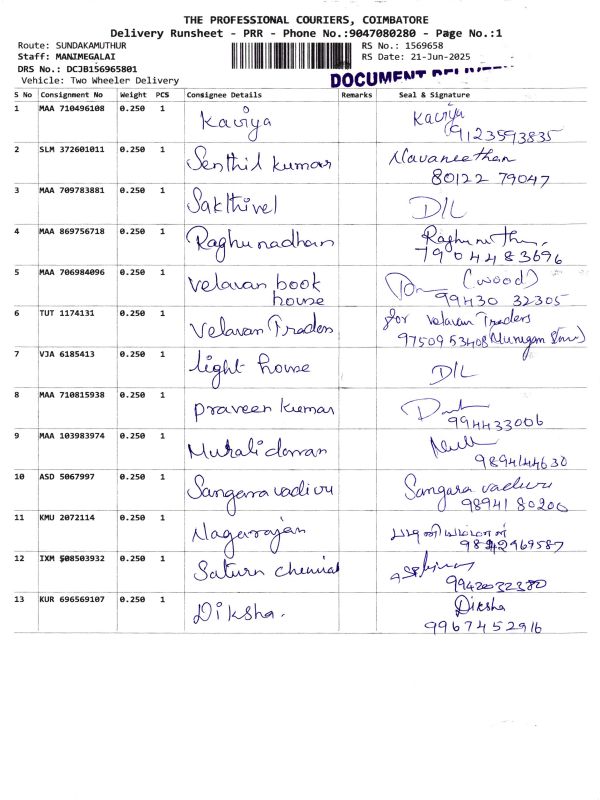 THE PROFESSIONAL COURIERS, COIMBATORE
Delivery Runsheet - PRR - Phone No.:9047080280 - Page No.:1
Route: SUNDAKAMUTHUR
RS No.: 1569658
Staff: MANIMEGALAI
RS Date: 21-Jun-2025
DRS No.: DCJB156965801
Vehicle: Two Wheeler Delivery
DOCUMENT
S No Consignment No Weight PCS Consignee Details Remarks Seal & Signature
1 MAA 710496108 0.250 1 Kaviya Kaviya
9123593835
2 SLM 372601011 0.250 1 Senthil kumar Navaneethan
80122 79047
3 MAA 709783881 0.250 1 Sakthivel D/L
4 MAA 869756718 0.250 1 Raghunadhan
7904483696
5 MAA 706984096 0.250 1 velavan book (wood)
house 99430 32305
6 TUT 1174131 0.250 1 Velavan Traders for Velavan Traders
9750953408
7 VJA 6185413 0.250 1 light house D/L
8 MAA 710815938 0.250 1 praveen kumar
994433006
9 MAA 103983974 0.250 1 Muralidaran
9894144630
10 ASD 5067997 0.250 1 Sangara vadivu Sangara vadivu
98941 80200
11 KMU 2072114 0.250 1 Nagarajan
12 IXM 508503932 0.250 1 Saturn chemical
9942032380
13 KUR 696569107 0.250 1 Diksha. Diksha
9967452916